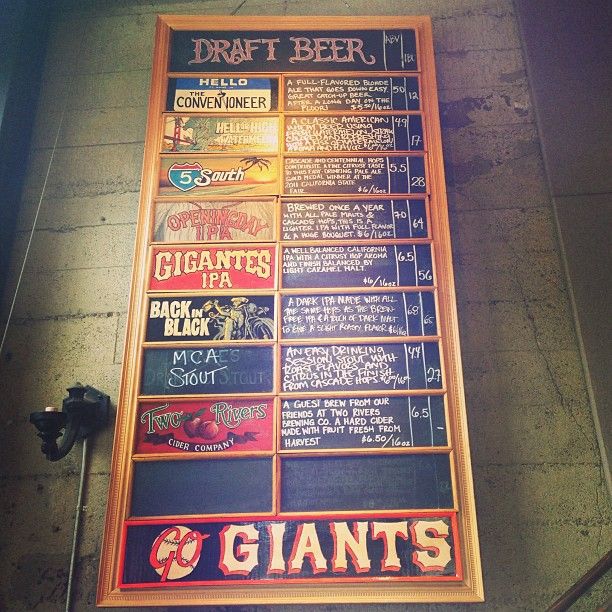 DRAFT BEER
ABV
IBU
HELLO
THE
CONVENTIONEER
A FULL-FLAVORED BLONDE
ALE THAT GOES DOWN EASY.
GREAT CATCH-UP BEER
AFTER A LONG DAY ON THE
FLOOR!
$5.50/16oz
5.0
12
HELL OR HIGH
WATERMELON
A CLASSIC AMERICAN
WHEAT BEER USING
4.9
17
5 South
CASCADE AND CENTENNIAL HOPS
CONTRIBUTE A FINE CITRUSY TASTE
TO THIS EASY-DRINKING PALE ALE.
GOLD MEDAL WINNER AT THE
2011 CALIFORNIA STATE
FAIR.
$6/16oz
5.5
28
OPENING DAY
IPA
BREWED ONCE A YEAR
WITH ALL PALE MALTS &
CASCADE HOPS, THIS IS A
LIGHTER IPA WITH FULL FLAVOR
& A HUGE BOUQUET. $6/16oz
7.0
64
GIGANTES
IPA
A WELL BALANCED CALIFORNIA
IPA WITH A CITRUSY HOP AROMA
AND FINISH BALANCED BY
LIGHT CARAMEL MALT.
$6/16oz
6.5
56
BACK IN
BLACK
A DARK IPA MADE WITH ALL
THE SAME HOPS AS THE BREW
FREE IPA & A TOUCH OF DARK MALT
TO GIVE A SLIGHT ROASTY FLAVOR. $6/16oz
6.8
65
MCAE'S
STOUT
AN EASY DRINKING
SESSION STOUT WITH
ROAST FLAVORS AND
CITRUS IN THE FINISH
FROM CASCADE HOPS.
4.4
27
TWO RIVERS
CIDER COMPANY
A GUEST BREW FROM OUR
FRIENDS AT TWO RIVERS
BREWING CO. A HARD CIDER
MADE WITH FRUIT FRESH FROM
HARVEST
$6.50/16oz
6.5
-
GO GIANTS